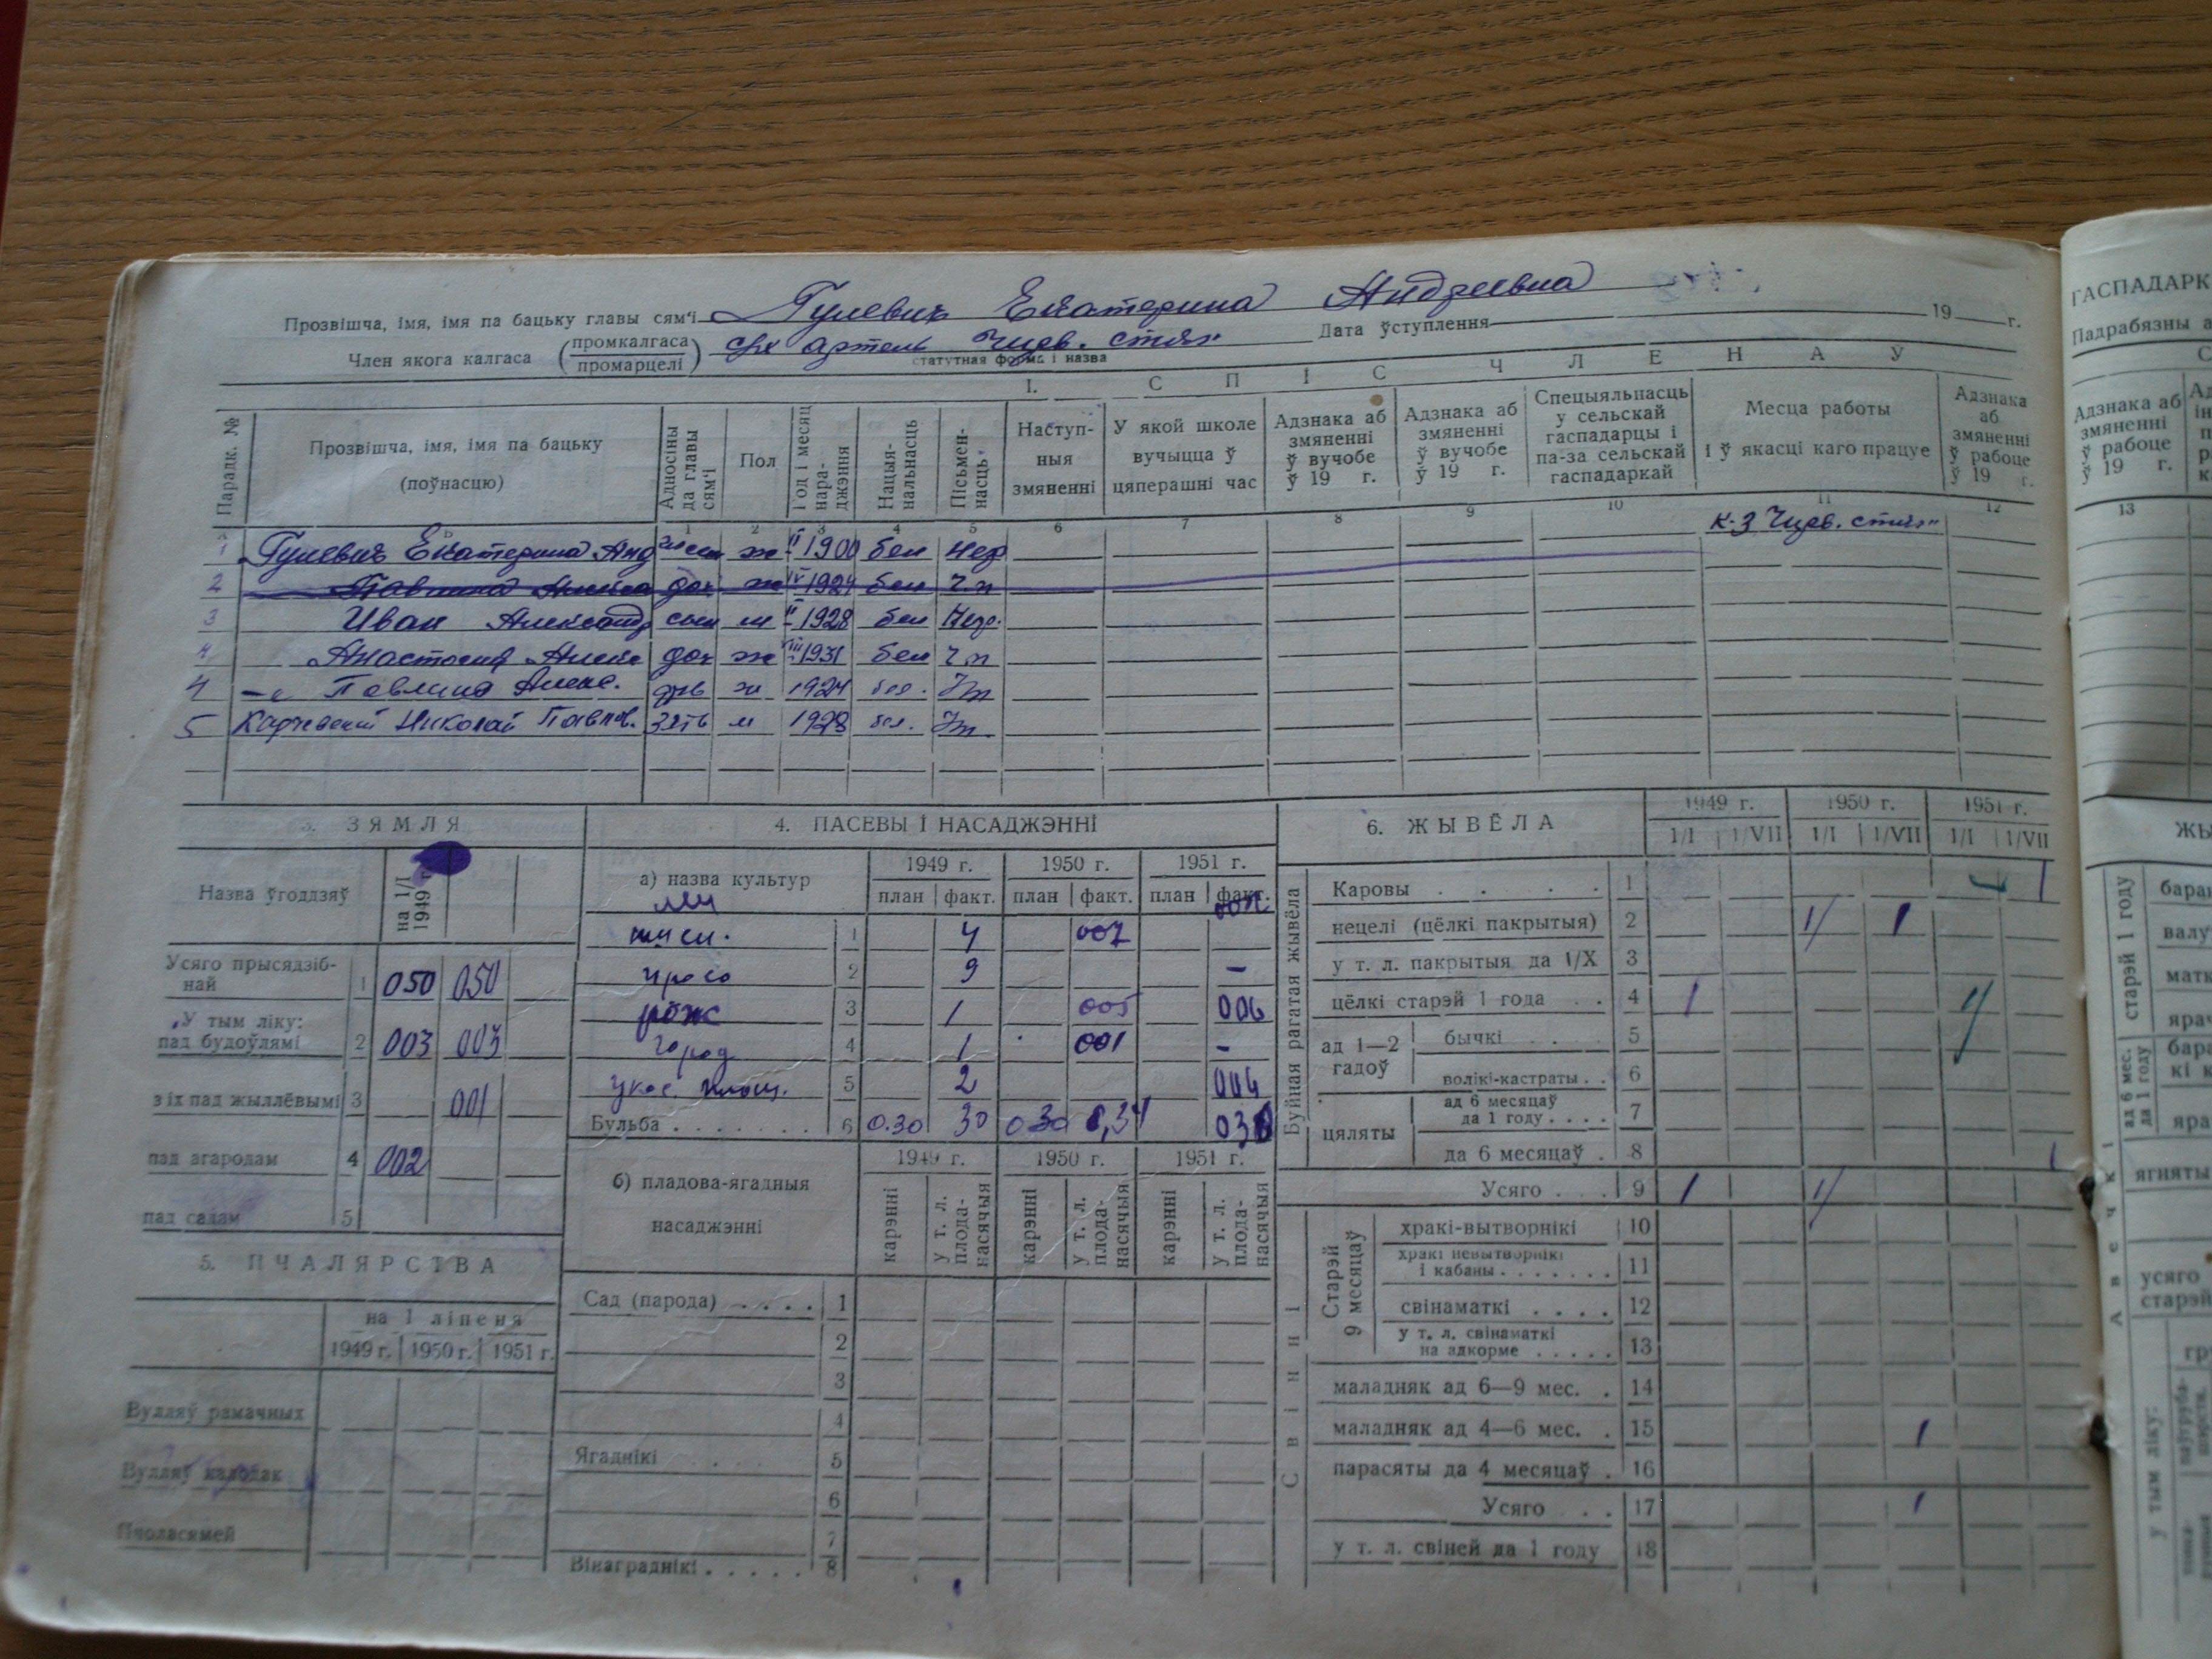 Прозвішча, імя, імя па бацьку главы сям'і Гулевич Екатерина Андреевна
Член якога калгаса (промкалгаса промарцелі) с/х артель Чирв. стяг" Дата ўступлення 19 г.
статутная форма і назва
I. СПІС ЧЛЕНАЎ
Парадк. № Прозвішча, імя, імя па бацьку (поўнасцю) Адносіны да главы сям'і Пол Год і месяц нараджэння Нацыянальнасць Пісьменнасць Наступныя змяненні У якой школе вучыцца ў цяперашні час Адзнака аб змяненні ў вучобе ў 19 г. Адзнака аб змяненні ў вучобе ў 19 г. Спецыяльнасць у сельскай гаспадарцы і па-за сельскай гаспадаркай Месца работы і ў якасці каго працуе Адзнака аб змяненні ў рабоце ў 19 г.
1 2 3 4 5 6 7 8 9 10 11 12
1 Гулевич Екатерина Анд ж II 1900 бел нер К-з Чирв. стяг"
2 Павлина Алекса доч ж IV 1924 бел
3 Иван Александ сын м II 1928 бел
4 Анастасия Алекс доч ж VIII 1931 бел
4 Павлина Алекс. ж 1924 бел.
5 Николай Павлов. зять м 1928 бел.
3. ЗЯМЛЯ
Назва ўгоддзяў на 1/I 1949 г.
Усяго прысядзібнай 1 050 050
У тым ліку: пад будоўлямі 2 003 003
з іх пад жыллёвымі 3 001
пад агародам 4 002
пад садам 5
5. ПЧАЛЯРСТВА
на 1 ліпеня
1949 г. 1950 г. 1951 г.
Вулляў рамачных
Вулляў калодак
Пчоласямей
4. ПАСЕВЫ І НАСАДЖЭННІ
а) назва культур 1949 г. 1950 г. 1951 г.
план факт. план факт. план факт.
1 4 007
просо 2 9 –
рож 3 1 005 006
город 4 1 001 –
укос. площ. 5 2 004
Бульба 6 0.30 30 030 0,34
б) пладова-ягадныя насаджэнні 1949 г. 1950 г. 1951 г.
карэнні у т. л. пладанасячыя карэнні у т. л. пладанасячыя карэнні у т. л. пладанасячыя
Сад (парода) 1
2
3
4
Ягаднікі 5
6
7
Вінаграднікі 8
6. ЖЫВЁЛА 1949 г. 1950 г. 1951 г.
1/I 1/VII 1/I 1/VII 1/I 1/VII
Буйная рагатая жывёла
Каровы 1 1
нецелі (цёлкі пакрытыя) 2 1 1
у т. л. пакрытыя да 1/X 3
цёлкі старэй 1 года 4 1 1
ад 1—2 гадоў бычкі 5
волікі-кастраты 6
цяляты ад 6 месяцаў да 1 году 7
да 6 месяцаў 8 1
Усяго 9 1 1
Свінні
Старэй 9 месяцаў хракі-вытворнікі 10
хракі невытворнікі і кабаны 11
свінаматкі 12
у т. л. свінаматкі на адкорме 13
маладняк ад 6—9 мес. 14
маладняк ад 4—6 мес. 15 1
парасяты да 4 месяцаў 16
Усяго 17 1
у т. л. свіней да 1 году 18
ГАСПАДАРК
Падрабязны а
Адзнака аб змяненні ў рабоце ў 19 г.
13
ЖЫ
Авечкі
старэй 1 году
бара
валу
матк
ярач
ад 6 мес. да 1 году
бара
кі к
яра
ягняты
усяго
старэй
у тым ліку: